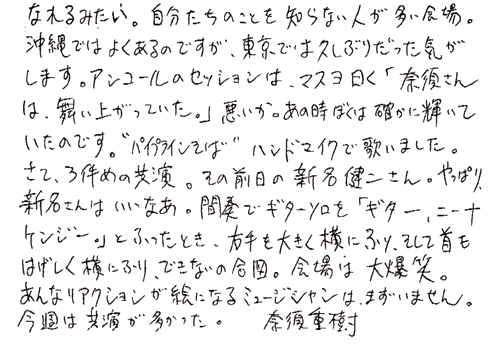 なれるみたい。自分たちのことを知らない人が多い会場。
沖縄ではよくあるのですが、東京では久しぶりだった気が
します。アンコールのセッションは、マスヨ曰く「奈須さん
は、舞い上がっていた。」悪いか。あの時ぼくは確かに輝いて
いたのです。"パイプラインそば"ハンドマイクで歌いました。
さて、3件めの共演。その前日の新名健二さん。やっぱり、
新名さんはいいなあ。間奏でギターソロを「ギター、ニーナ
ケンジー。」とふったとき、右手も大きく横にふり、そして首も
はげしく横にふり、できないの合図。会場は大爆笑。
あんなリアクションが絵になるミュージシャンは、まずいません。
今週は共演が多かった。　奈須重樹